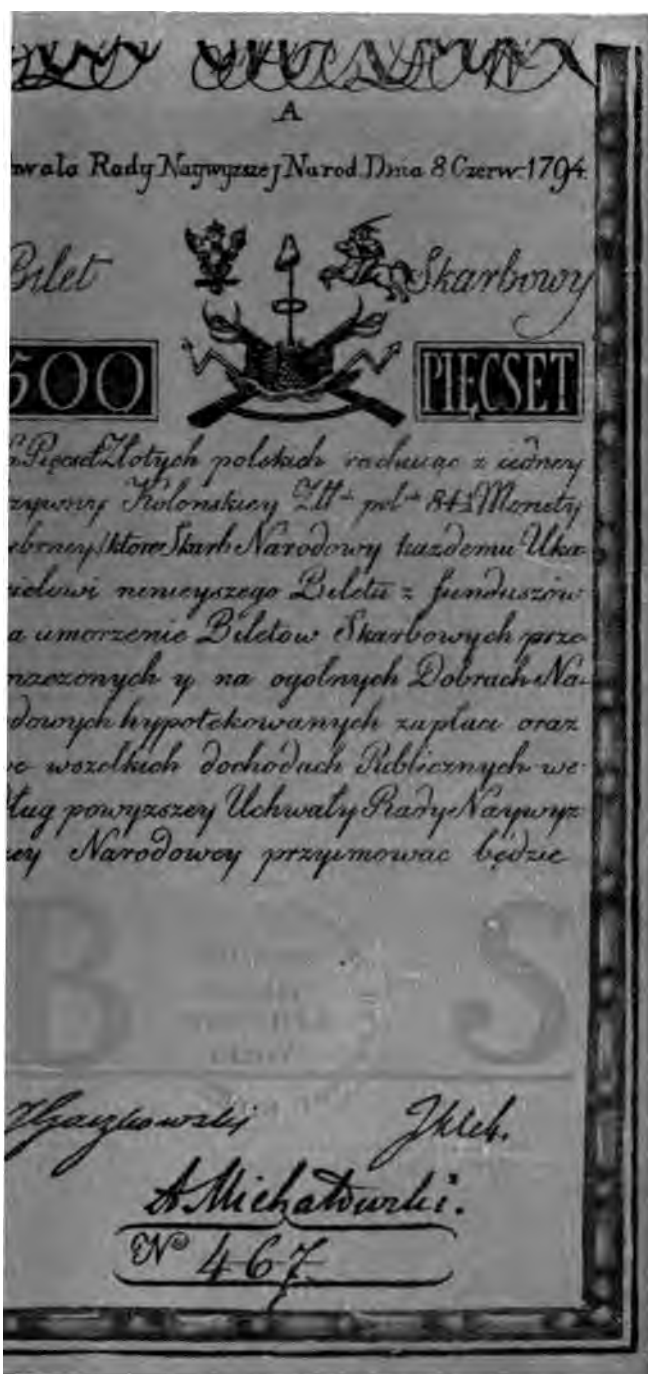 A
wala Rady Naywyzszej Narod. Dnia 8 Czerw. 1794.
Bilet Skarbowy
500 PIĘCSET
Pięcset Złotych polskich rachuiąc z iedney
zywny Kolonskiey Złł pol 84½ Monety
ebrney ktore Skarb Narodowy każdemu Uka-
zicielowi nineyszego Biletu z funduszow
a umorzenie Biletow Skarbowych prze-
naczonych y na ogolnych Dobrach Na-
dowych hypotekowanych zapłaci oraz
we wszelkich dochodach Publicznych we-
dług powyzszey Uchwały Rady Naywyz-
zey Narodowey przyimowac będzie
B S
A Michałowski.
No 467